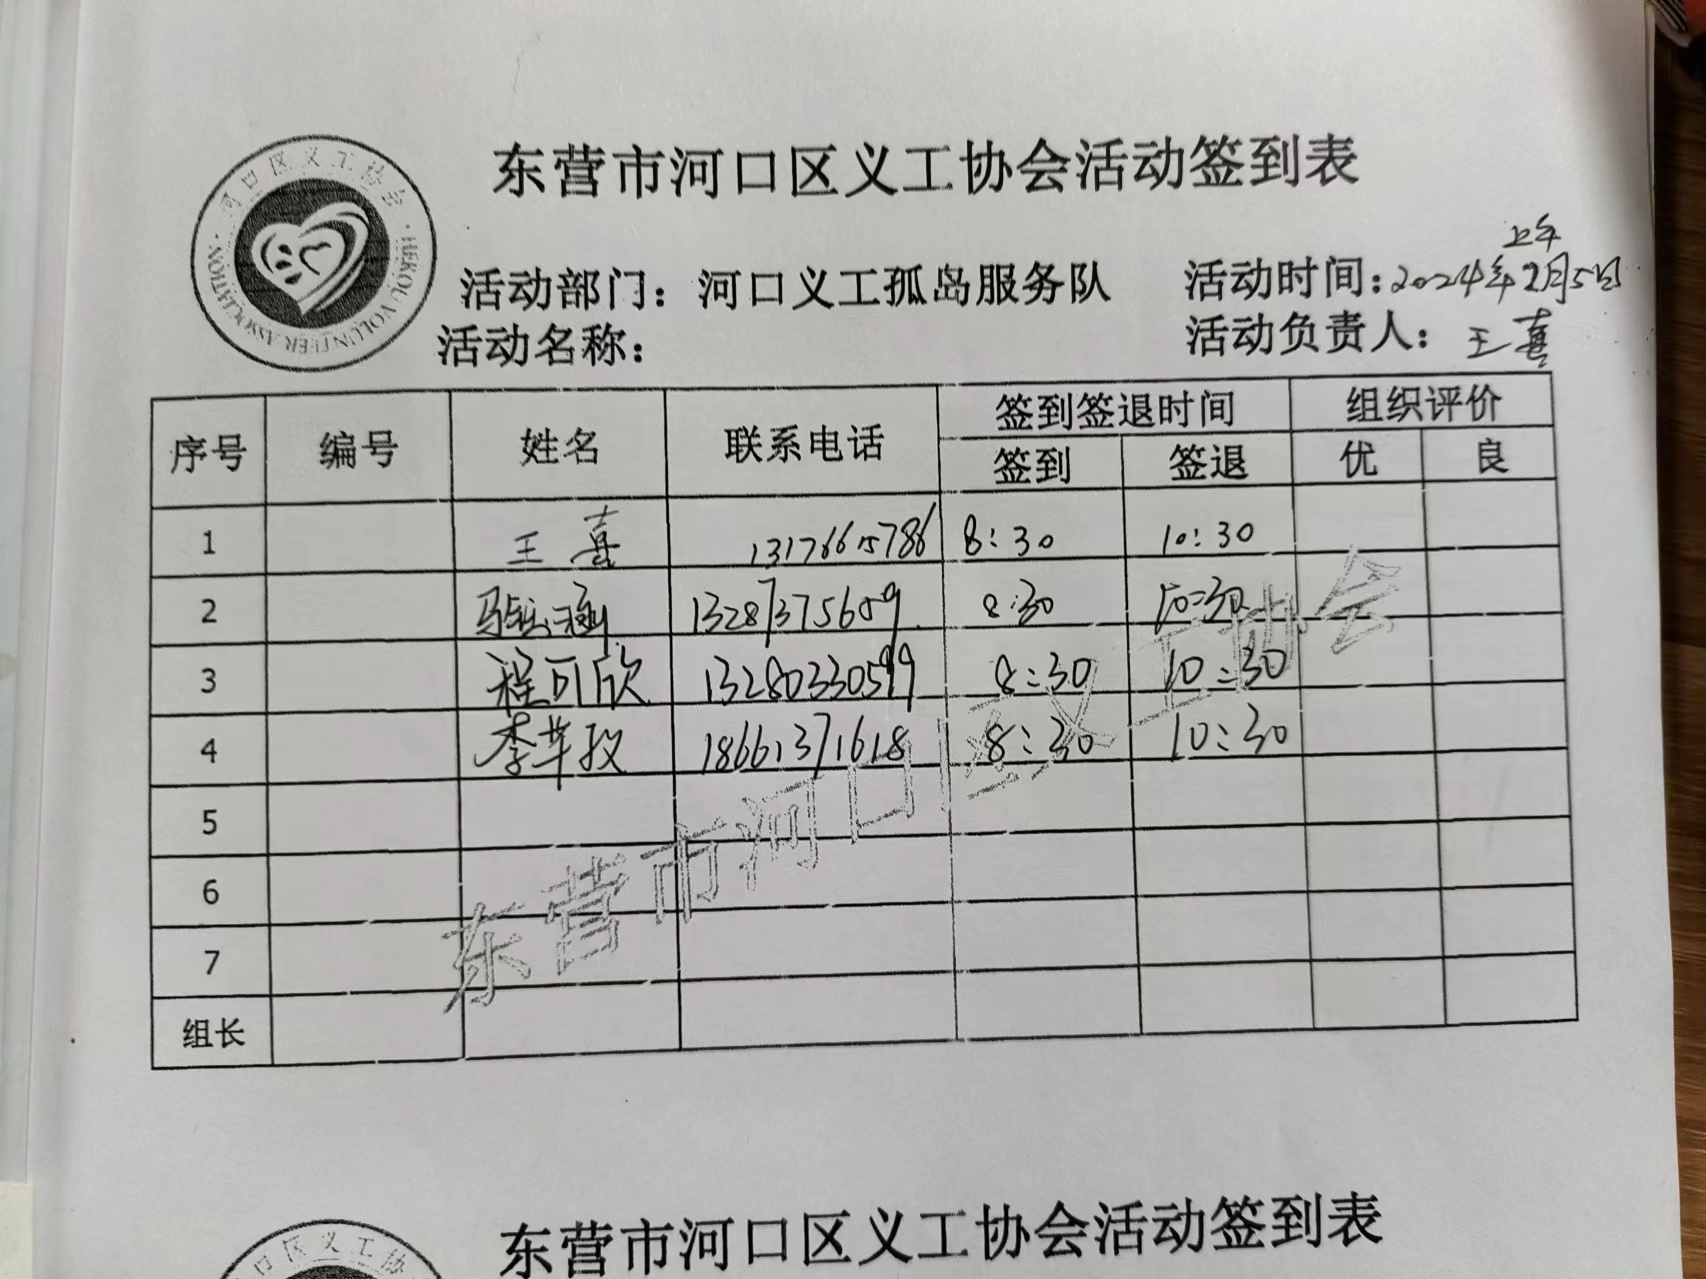 东营市河口区义工协会活动签到表
河口区义工协会
HEKOU VOLUNTEER ASSOCIATION
上午
活动部门：河口义工孤岛服务队 活动时间：2024年2月5日
活动名称： 活动负责人：王喜
序号 编号 姓名 联系电话 签到签退时间 组织评价
签到 签退 优 良
1 王喜 13176615786 8:30 10:30
2 13287375659 8:30 10:30
3 程可欣 13280330599 8:30 10:30
4 李 18661371618 8:30 10:30
5
6
7
组长
东营市河口区义工协会
东营市河口区义工协会活动签到表
口区义工协